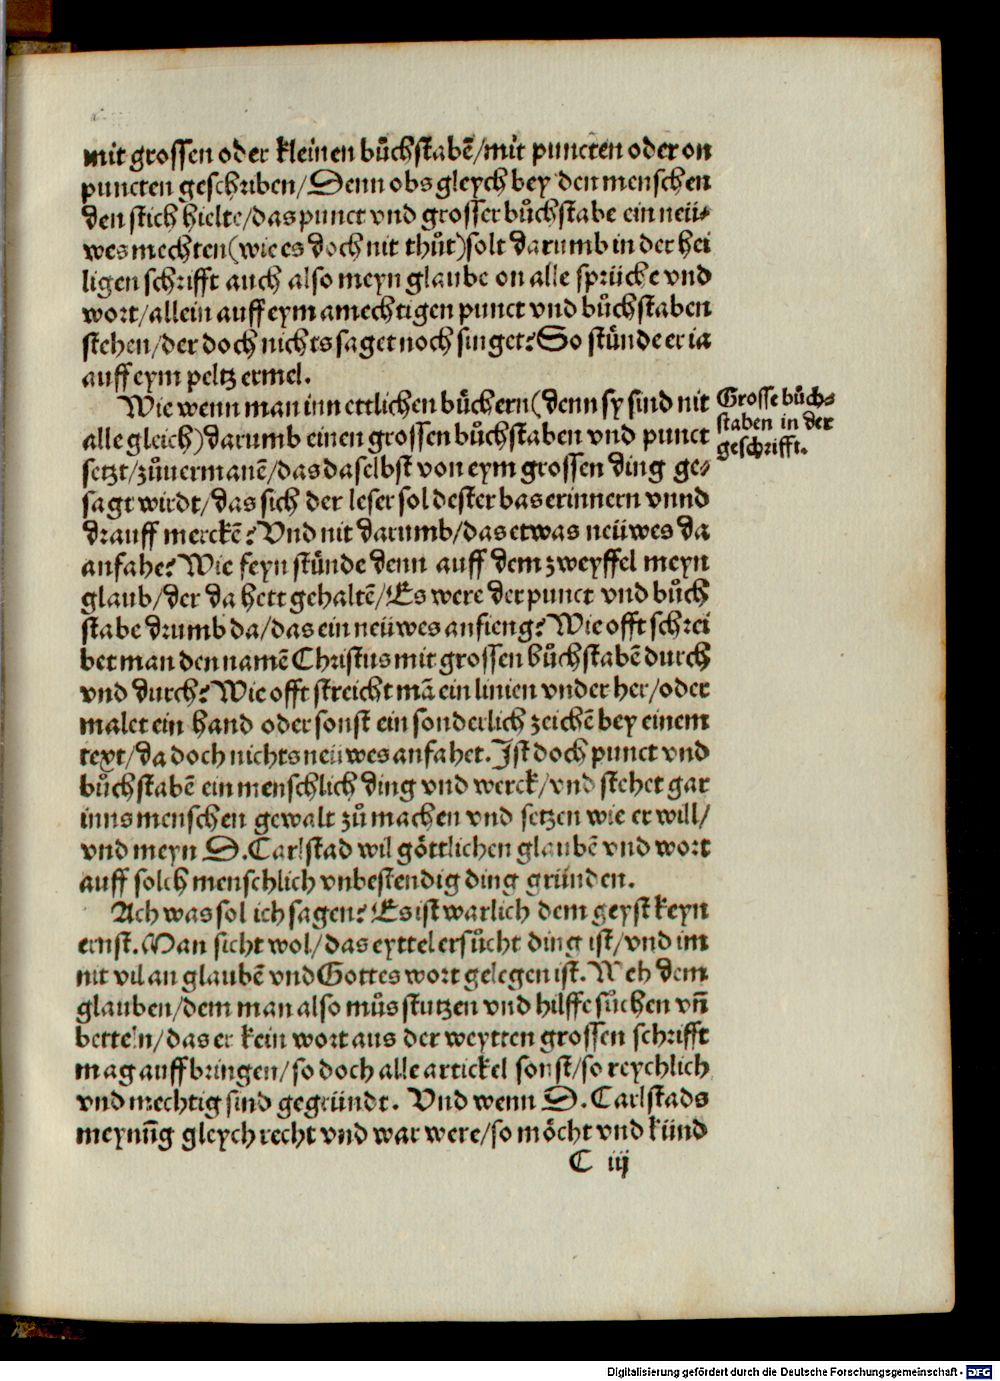 mit grossen oder kleinen bůchstabẽ/mit puncten oder on
puncten geschriben/Denn obs gleych bey den menschen
den stich hielte/das punct vnd grosser bůchstabe ein neü⸗
wes mechten(wie es doch nit thůt)solt darumb in der hei
ligen schrifft auch also meyn glaube on alle sprüche vnd
wort/allein auff eym amechtigen punct vnd bůchstaben
stehen/der doch nichts saget noch singet? So stünde er ia
auff eym peltz ermel.
Wie wenn man inn ettlichen bůchern(denn sy sind nit
alle gleich)darumb einen grossen bůchstaben vnd punct
setzt/zůuermanẽ/das daselbst von eym grossen ding ge⸗
sagt wirdt/das sich der leser sol dester bas erinnern vnnd
drauff merckẽ? Vnd nit darumb/das etwas neüwes da
anfahe? Wie feyn stünde denn auff dem zweyffel meyn
glaub/der da hett gehaltẽ/Es were der punct vnd bůch
stabe drumb da/das ein neüwes anfieng? Wie offt schrei
bet man den namẽ Christus mit grossen bůchstabẽ durch
vnd durch? Wie offt streicht mã ein linien vnder her/oder
malet ein hand oder sonst ein sonderlich zeichẽ bey einem
text/da doch nichts neüwes anfahet. Ist doch punct vnd
bůchstabẽ ein menschlich ding vnd werck/vnd stehet gar
inns menschen gewalt zů machen vnd setzen wie er will/
vnd meyn D. Carlstad wil göttlichen glaubẽ vnd wort
auff solch menschlich vnbestendig ding gründen.
Ach was sol ich sagen? Es ist warlich dem geyst keyn
ernst. Man sicht wol/das eyttel ersůcht ding ist/vnd im
nit vil an glaubẽ vnd Gottes wort gelegen ist. Weh dem
glauben/dem man also můs stutzen vnd hilffe sůchen vñ
betteln/das er kein wort aus der weytten grossen schrifft
mag auffbringen/so doch alle artickel sonst/so reychlich
vnd mechtig sind gegründt. Vnd wenn D. Carlstads
meynũg gleych recht vnd war were/so möcht vnd künd
C iij
Grosse bůch⸗
staben in der
geschrifft.
Digitalisierung gefördert durch die Deutsche Forschungsgemeinschaft - DFG